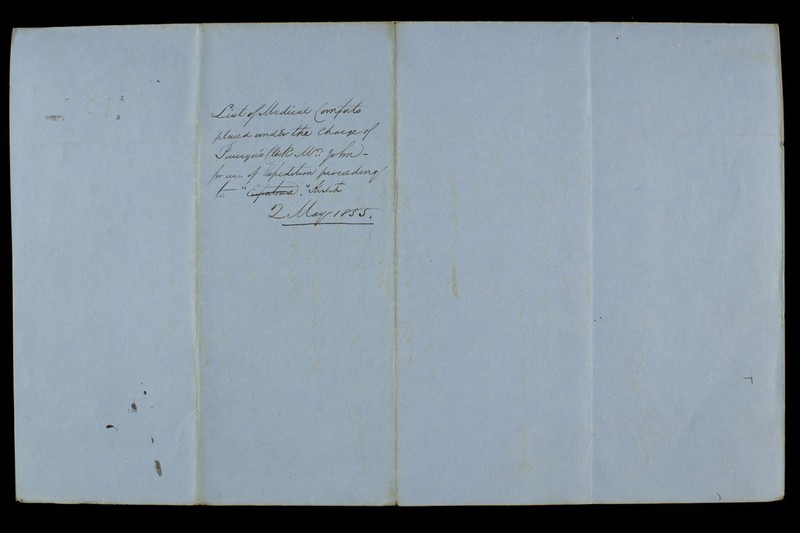 List of Medical Comforts
placed under the Charge of
Purveyor's Clerk Mr. John
for use of Expedition proceeding
to "Eupatoria". Kertch
2 May 1855.